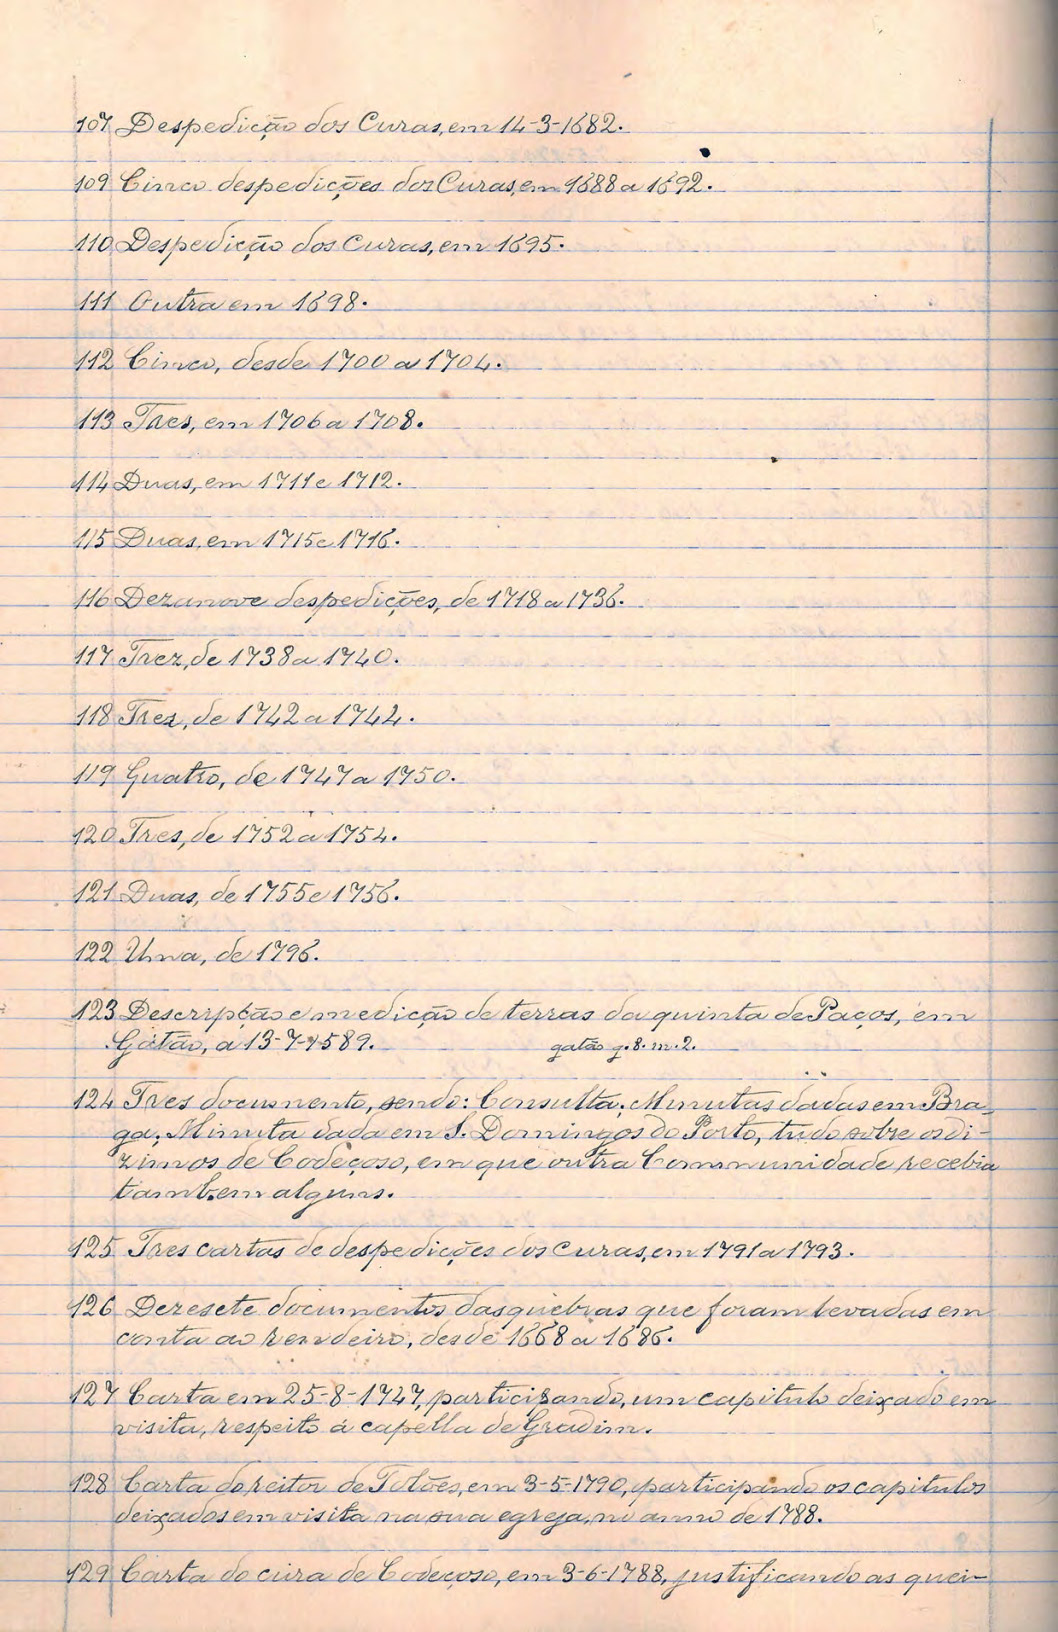 107 Despedição dos Curas, em 14-3-1682.
109 Cinco despedições dos Curas, em 1688 a 1692.
110 Despedição dos Curas, em 1695.
111 Outra em 1698.
112 Cinco, desde 1700 a 1704.
113 Tres, em 1706 a 1708.
114 Duas, em 1711 e 1712.
115 Duas, em 1715 e 1716.
116 Dezanove despedições, de 1718 a 1736.
117 Trez, de 1738 a 1740.
118 Trez, de 1742 a 1744.
119 Quatro, de 1747 a 1750.
120 Tres, de 1752 a 1754.
121 Duas, de 1755 e 1756.
122 Uma, de 1796.
123 Descripção e medição de terras da quinta de Paços, em
Gatão, a 13-7-1589. gatão g. 8. m. 2.
124 Tres documento, sendo: Consulta; Minutas dadas em Bra-
ga; Minuta dada em S. Domingos do Porto, tudo sobre os di-
zimos de Codeçoso, em que outra Communidade recebia
tambem alguns.
125 Tres cartas de despedições dos Curas, em 1791 a 1793.
126 Dezesete documentos das quebras que foram levadas em
conta ao rendeiro, desde 1668 a 1686.
127 Carta em 25-8-1747, participando, um capitulo deixado em
visita, respeito á capella de Gradim.
128 Carta do reitor de Tolões, em 3-5-1790, participando os capitulos
deixados em visita na sua egreja, no anno de 1788.
129 Carta do cura de Codeçoso, em 3-6-1788, justificando as quei-